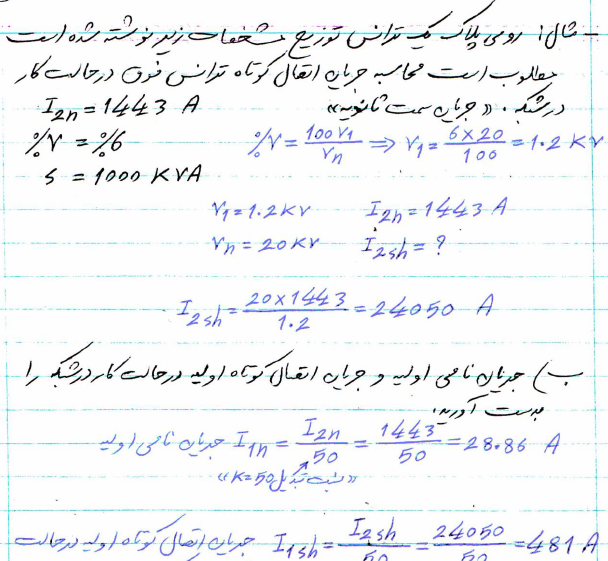 - مثال ۱ روی پلاک یک ترانس توزیع مشخصات زیر نوشته شده است
مطلوب است محاسبه جریان اتصال کوتاه ترانس فوق در حالت کار
در شبکه . «جریان سمت ثانویه»
I2n = 1443 A
%V = %6    %V = 100 V1 / Vn ⇒ V1 = 6×20 / 100 = 1.2 KV
S = 1000 KVA
V1 = 1.2 KV    I2n = 1443 A
Vn = 20 KV    I2sh = ?
I2sh = 20×1443 / 1.2 = 24050 A
ب) جریان نامی اولیه و جریان اتصال کوتاه اولیه در حالت کار در شبکه را
بدست آورید.
جریان نامی اولیه I1n = I2n / 50 = 1443 / 50 = 28.86 A
«نسبت تبدیل K=50»
جریان اتصال کوتاه اولیه در حالت I1sh = I2sh / 50 = 24050 / 50 = 481 A